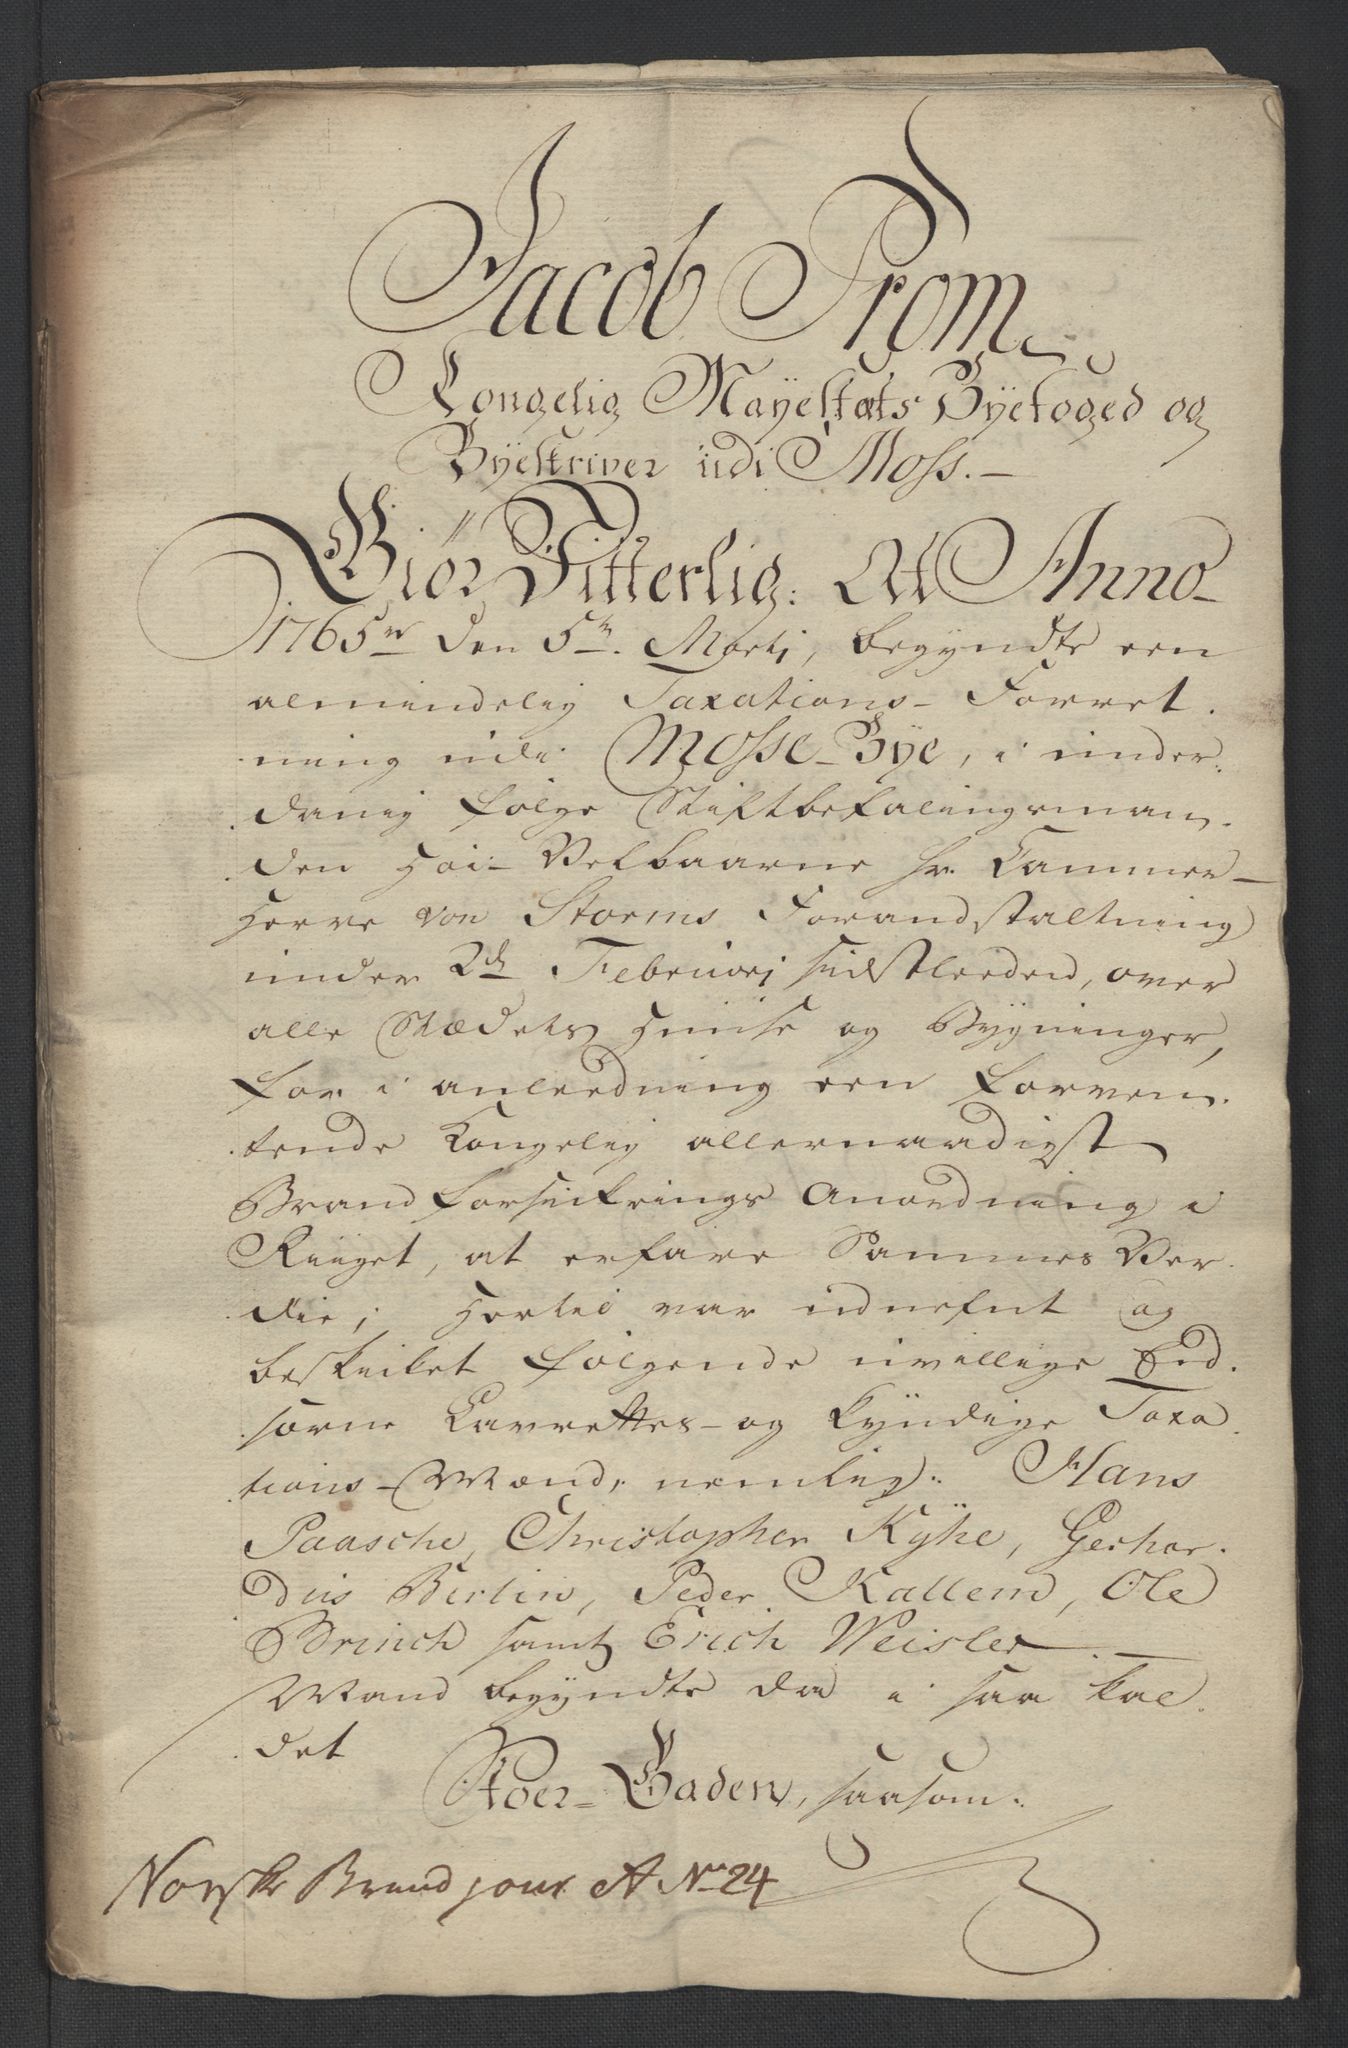 Jacob Prom
Kongelig Mayestæts Byefoged og
Byeskriver udi Moss. –
Giör Vitterlig: At Anno
1765ve den 5te. Martj, begyndte een
almindelig Taxations-Forret-
ning udi Mosse-Bye, i under-
danig følge Stiftbefalingsman-
den Høi-Velbaarne Hr. Cammer-
Herre von Storms Forandstaltning
under 2de Februarj sidstleeden, over
alle Stædets Huuse og Bygninger,
for i anleedning een forven-
tende Kongelig allernaadigst
Brand forsikrings Anordning i
Riiget, at erfare Sammes Vær-
die; Hertil var udnefnt og
beskicket følgende uvillige Eed-
sorne Laurettes- og kyndige Taxa-
tions-Mænd, nemlig: Hans
Paasche, Christopher Kyhe, Gerhar-
dus Berlin, Peder Kallem, Ole
Bruuch samt Erich Weisler. –
Mand begyndte da i saa kal-
det
Stoer-Gaden, saasom:
Norske Brand jour. A No 24